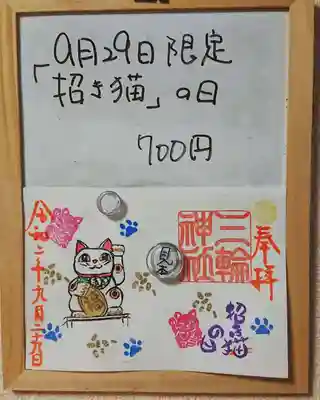 9月29日限定
「招き猫」の日
700円
奉拝
三輪
神社
見本
招き猫
の日
令和二年九月二十九日